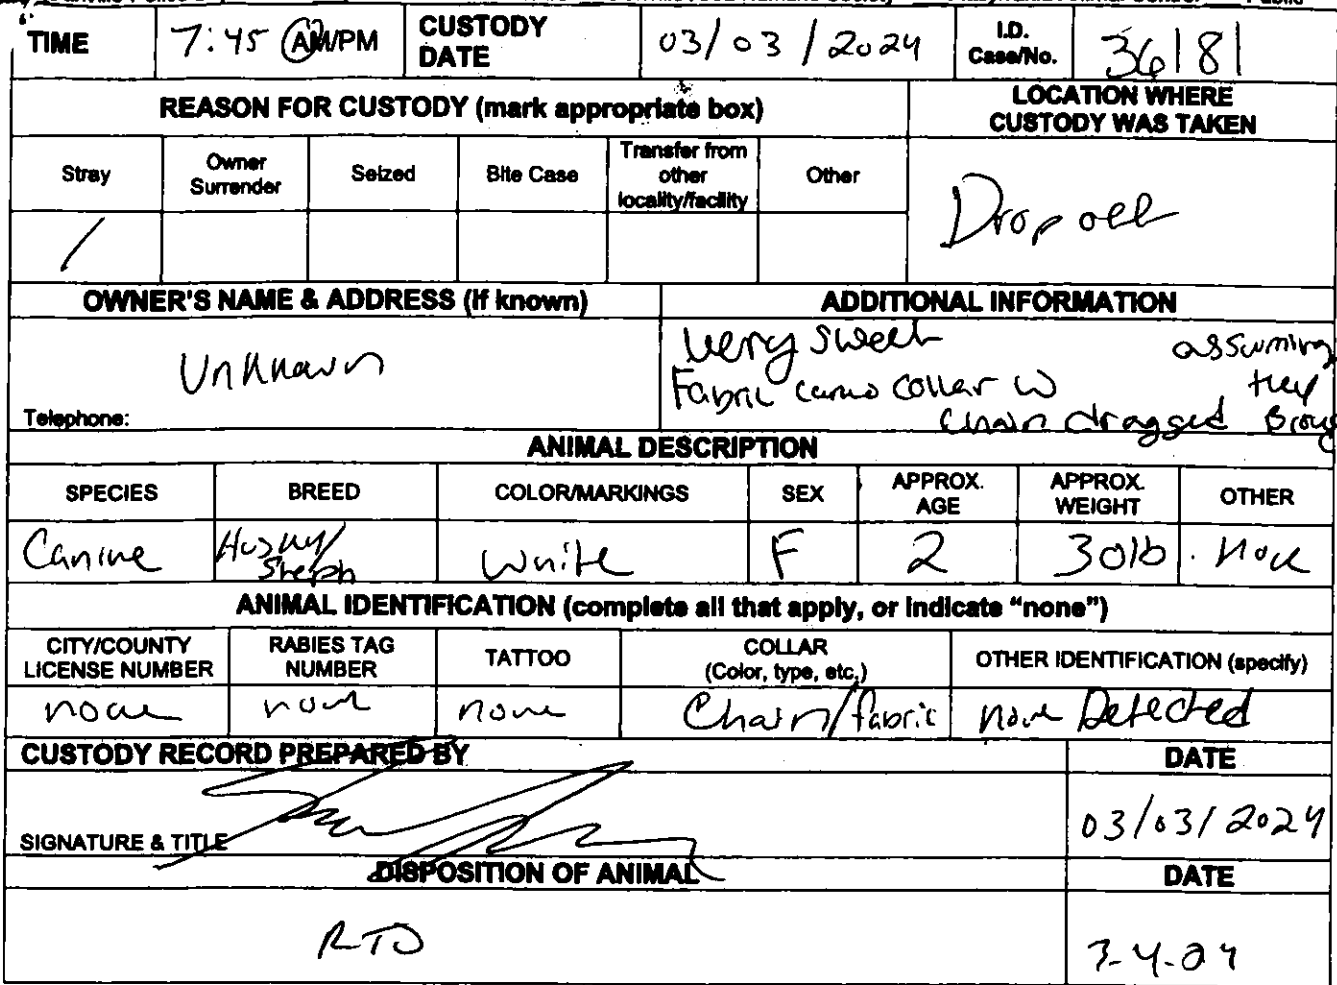 TIME 7:45 AM/PM CUSTODY DATE 03/03/2024 I.D. Case/No. 36181
REASON FOR CUSTODY (mark appropriate box) LOCATION WHERE CUSTODY WAS TAKEN
Stray Owner Surrender Seized Bite Case Transfer from other locality/facility Other
/ Drop off
OWNER'S NAME & ADDRESS (if known) ADDITIONAL INFORMATION
Unknown very sweet assuming
Fabric camo collar w they
Telephone: chain dragged Broug
ANIMAL DESCRIPTION
SPECIES BREED COLOR/MARKINGS SEX APPROX. AGE APPROX. WEIGHT OTHER
Canine Husky/ Sheph White F 2 30lb. none
ANIMAL IDENTIFICATION (complete all that apply, or indicate "none")
CITY/COUNTY LICENSE NUMBER RABIES TAG NUMBER TATTOO COLLAR (Color, type, etc.) OTHER IDENTIFICATION (specify)
none none none Chain/fabric none Detected
CUSTODY RECORD PREPARED BY DATE
SIGNATURE & TITLE 03/03/2024
DISPOSITION OF ANIMAL DATE
RTO 3-4-24